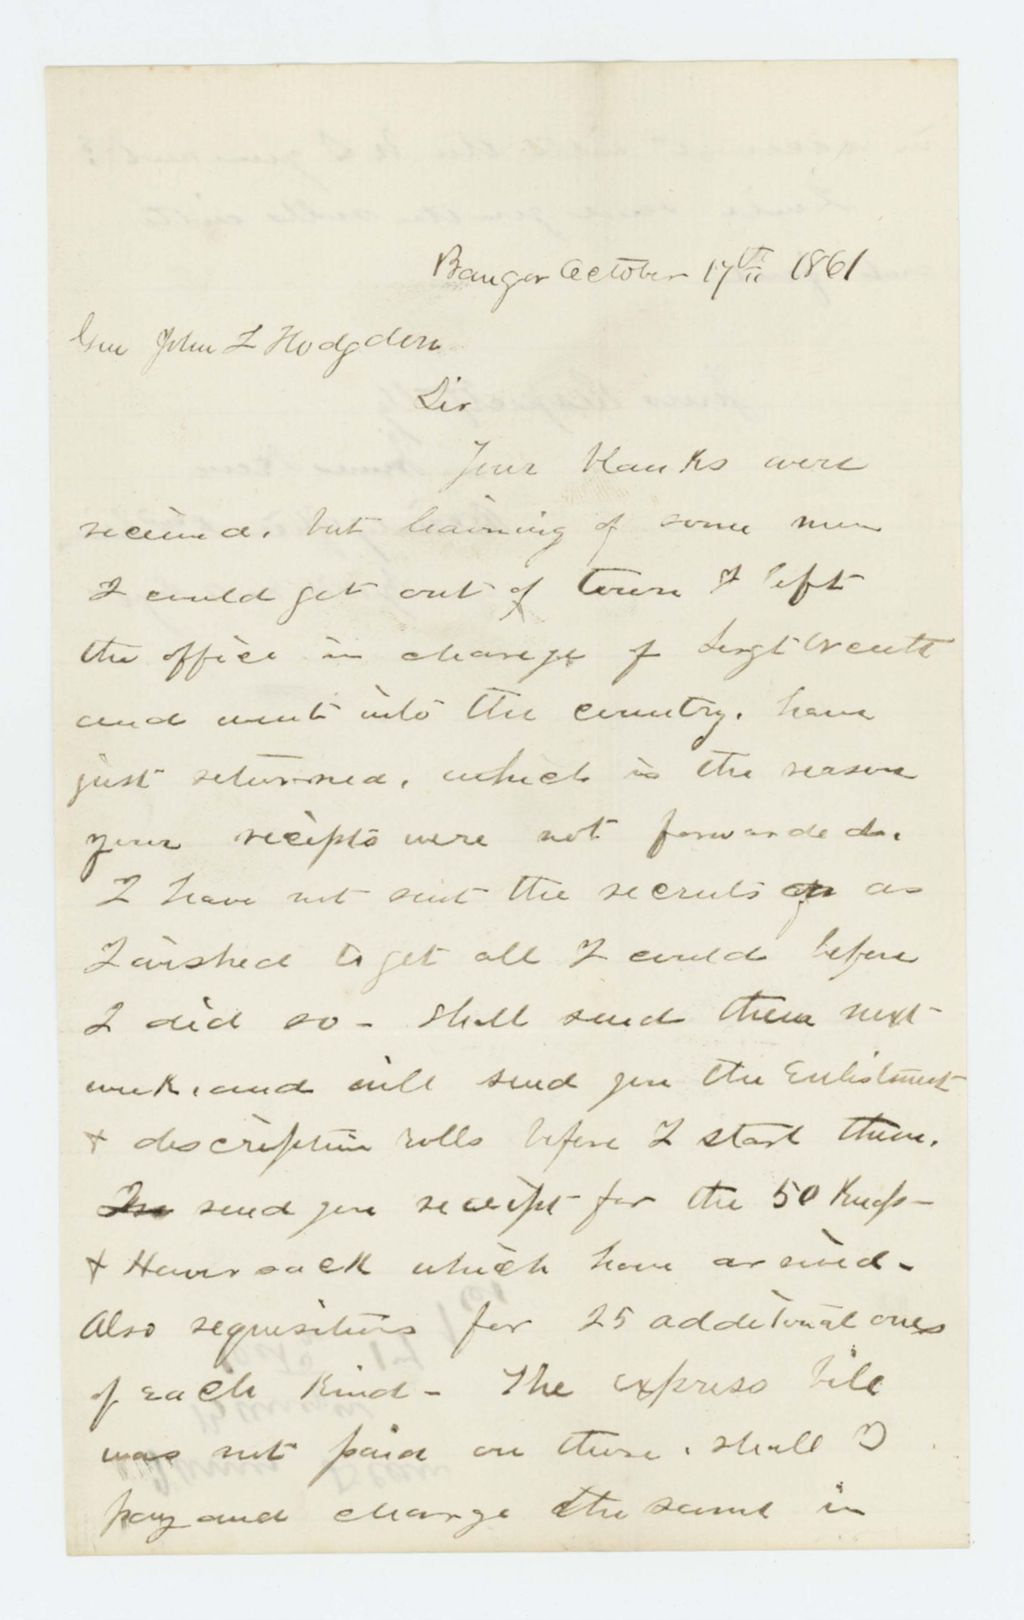 Bangor October 17th 1861
Gen John L Hodgdon
Sir
Your blanks were
received, but learning of some men
I could get out of town I left
the office in charge of Sergt
and went into the country. have
just returned, which is the reason
your reciepts were not forwarded.
I have not sent the recruits on as
I wished to get all I could before
I did so - Shall send them next
week, and will send you the Enlistment
& description rolls before I start them.
send you receipt for the 50 Knaps-
& Haversack which have arrived -
Also requisitions for 25 additional ones
of each kind - The express bill
was not paid on these. shall I
pay and charge the same in